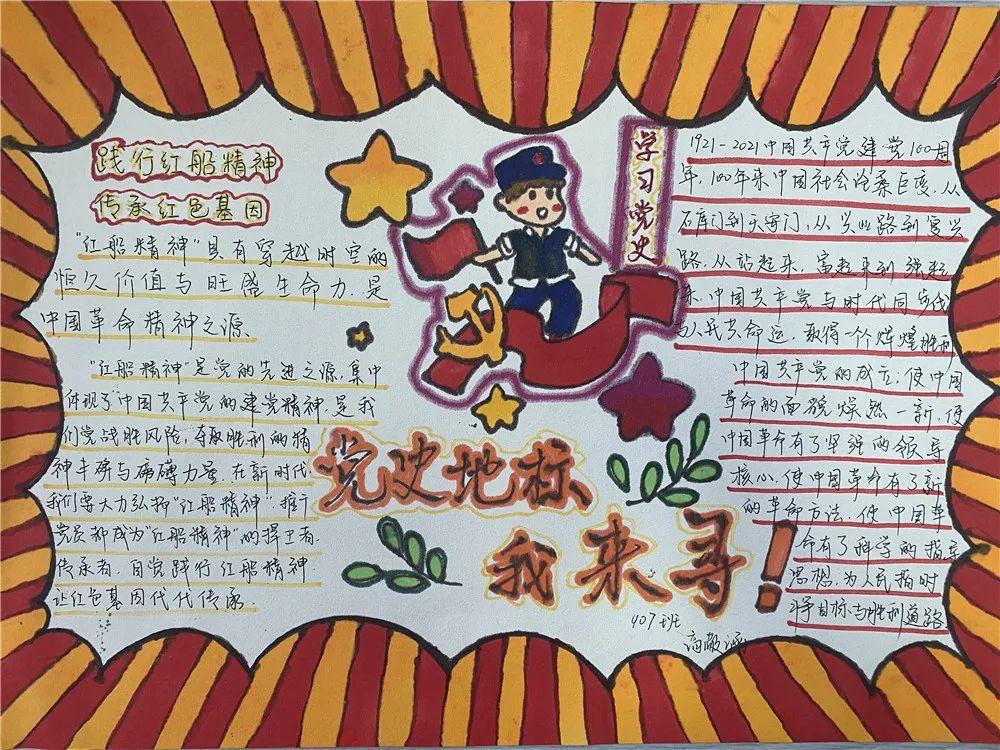 践行红船精神
传承红色基因
"红船精神"具有穿越时空的
恒久价值与旺盛生命力,是
中国革命精神之源
"红船精神"是党的先进之源,集中
体现了中国共产党的建党精神,是我
们党战胜风险,夺取胜利的精
神丰碑与磅礴力量,在新时代
我们要大力弘扬"红船精神",推广
党员都成为"红船精神"的捍卫者,
传承者,自觉践行红船精神,
让红色基因代代传承
学习党史
党史地标
我来寻!
407班
1921-2021中国共产党建党100周
年,100年来中国社会沧桑巨变,从
石库门到天安门,从兴业路到复兴
路,从站起来,富起来到强起
来,中国共产党与时代同步伐
与人民共命运,取得一个个辉煌胜利
中国共产党的成立,使中国
革命的面貌焕然一新,使
中国革命有了坚强的领导
核心,使中国革命有了新
的革命方法,使中国革
命有了科学的指导
思想,为人民指明
了目标与胜利道路